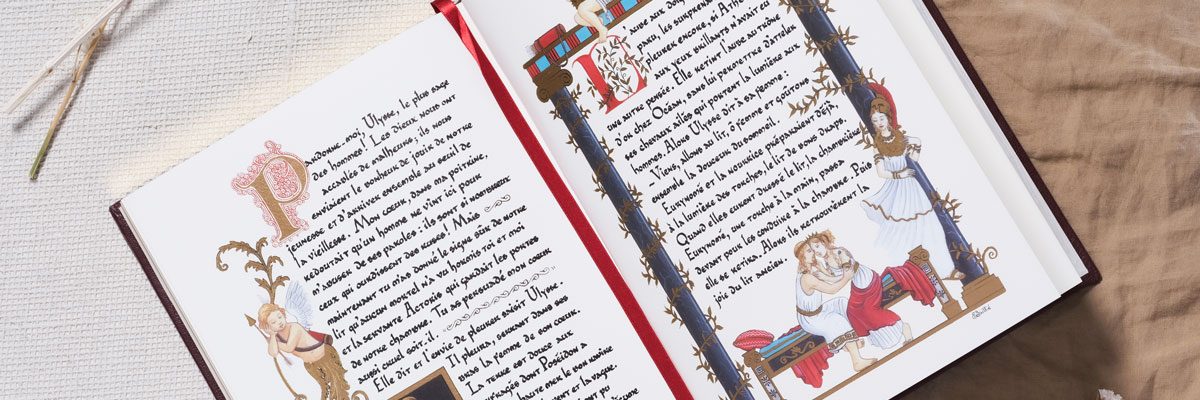 Pardonne-moi, Ulysse, le plus sage
des hommes! Les Dieux nous ont
accablés de malheurs; ils nous
enviaient le bonheur de jouir de notre
jeunesse et d'arriver ensemble au seuil de
la vieillesse. Mon cœur, dans ma poitrine,
redoutait qu'un homme ne vînt ici pour
m'abuser de ses paroles: ils sont si nombreux
ceux qui ourdissent des ruses! Mais
maintenant tu m'as donné le signe sûr de notre
lit qu'aucun mortel n'a vu hormis toi et moi
et la servante Actoris qui gardait les portes
de notre chambre. Tu as persuadé mon cœur
aussi cruel soit-il."
Elle dit et l'envie de pleurer saisit Ulysse.
Il pleura, serrant dans ses
bras la femme de son cœur.
La terre est douce aux
naufragés dont Poséidon a
haute mer le bon navire
vent et la vague.
ont pu
L'aube aux doi
paru, les surprenan
pleurer encore, si Athé
aux yeux brillants n'avait eu
une autre pensée. Elle retint l'aube au trône
d'or chez Océan, sans lui permettre d'atteler
ses chevaux ailés qui portent la lumière aux
hommes. Alors Ulysse dit à sa femme:
- Viens, allons au lit, ô femme et goûtons
ensemble la douceur du sommeil.
Eurynomé et la nourrice préparaient déjà,
à la lumière des torches, le lit de bons draps.
Quand elles eurent dressé le lit, la chambrière
Eurynomé, une torche à la main, passa
devant pour les conduire à la chambre. Puis
elle se retira. Alors ils retrouvèrent la
joie du lit ancien.